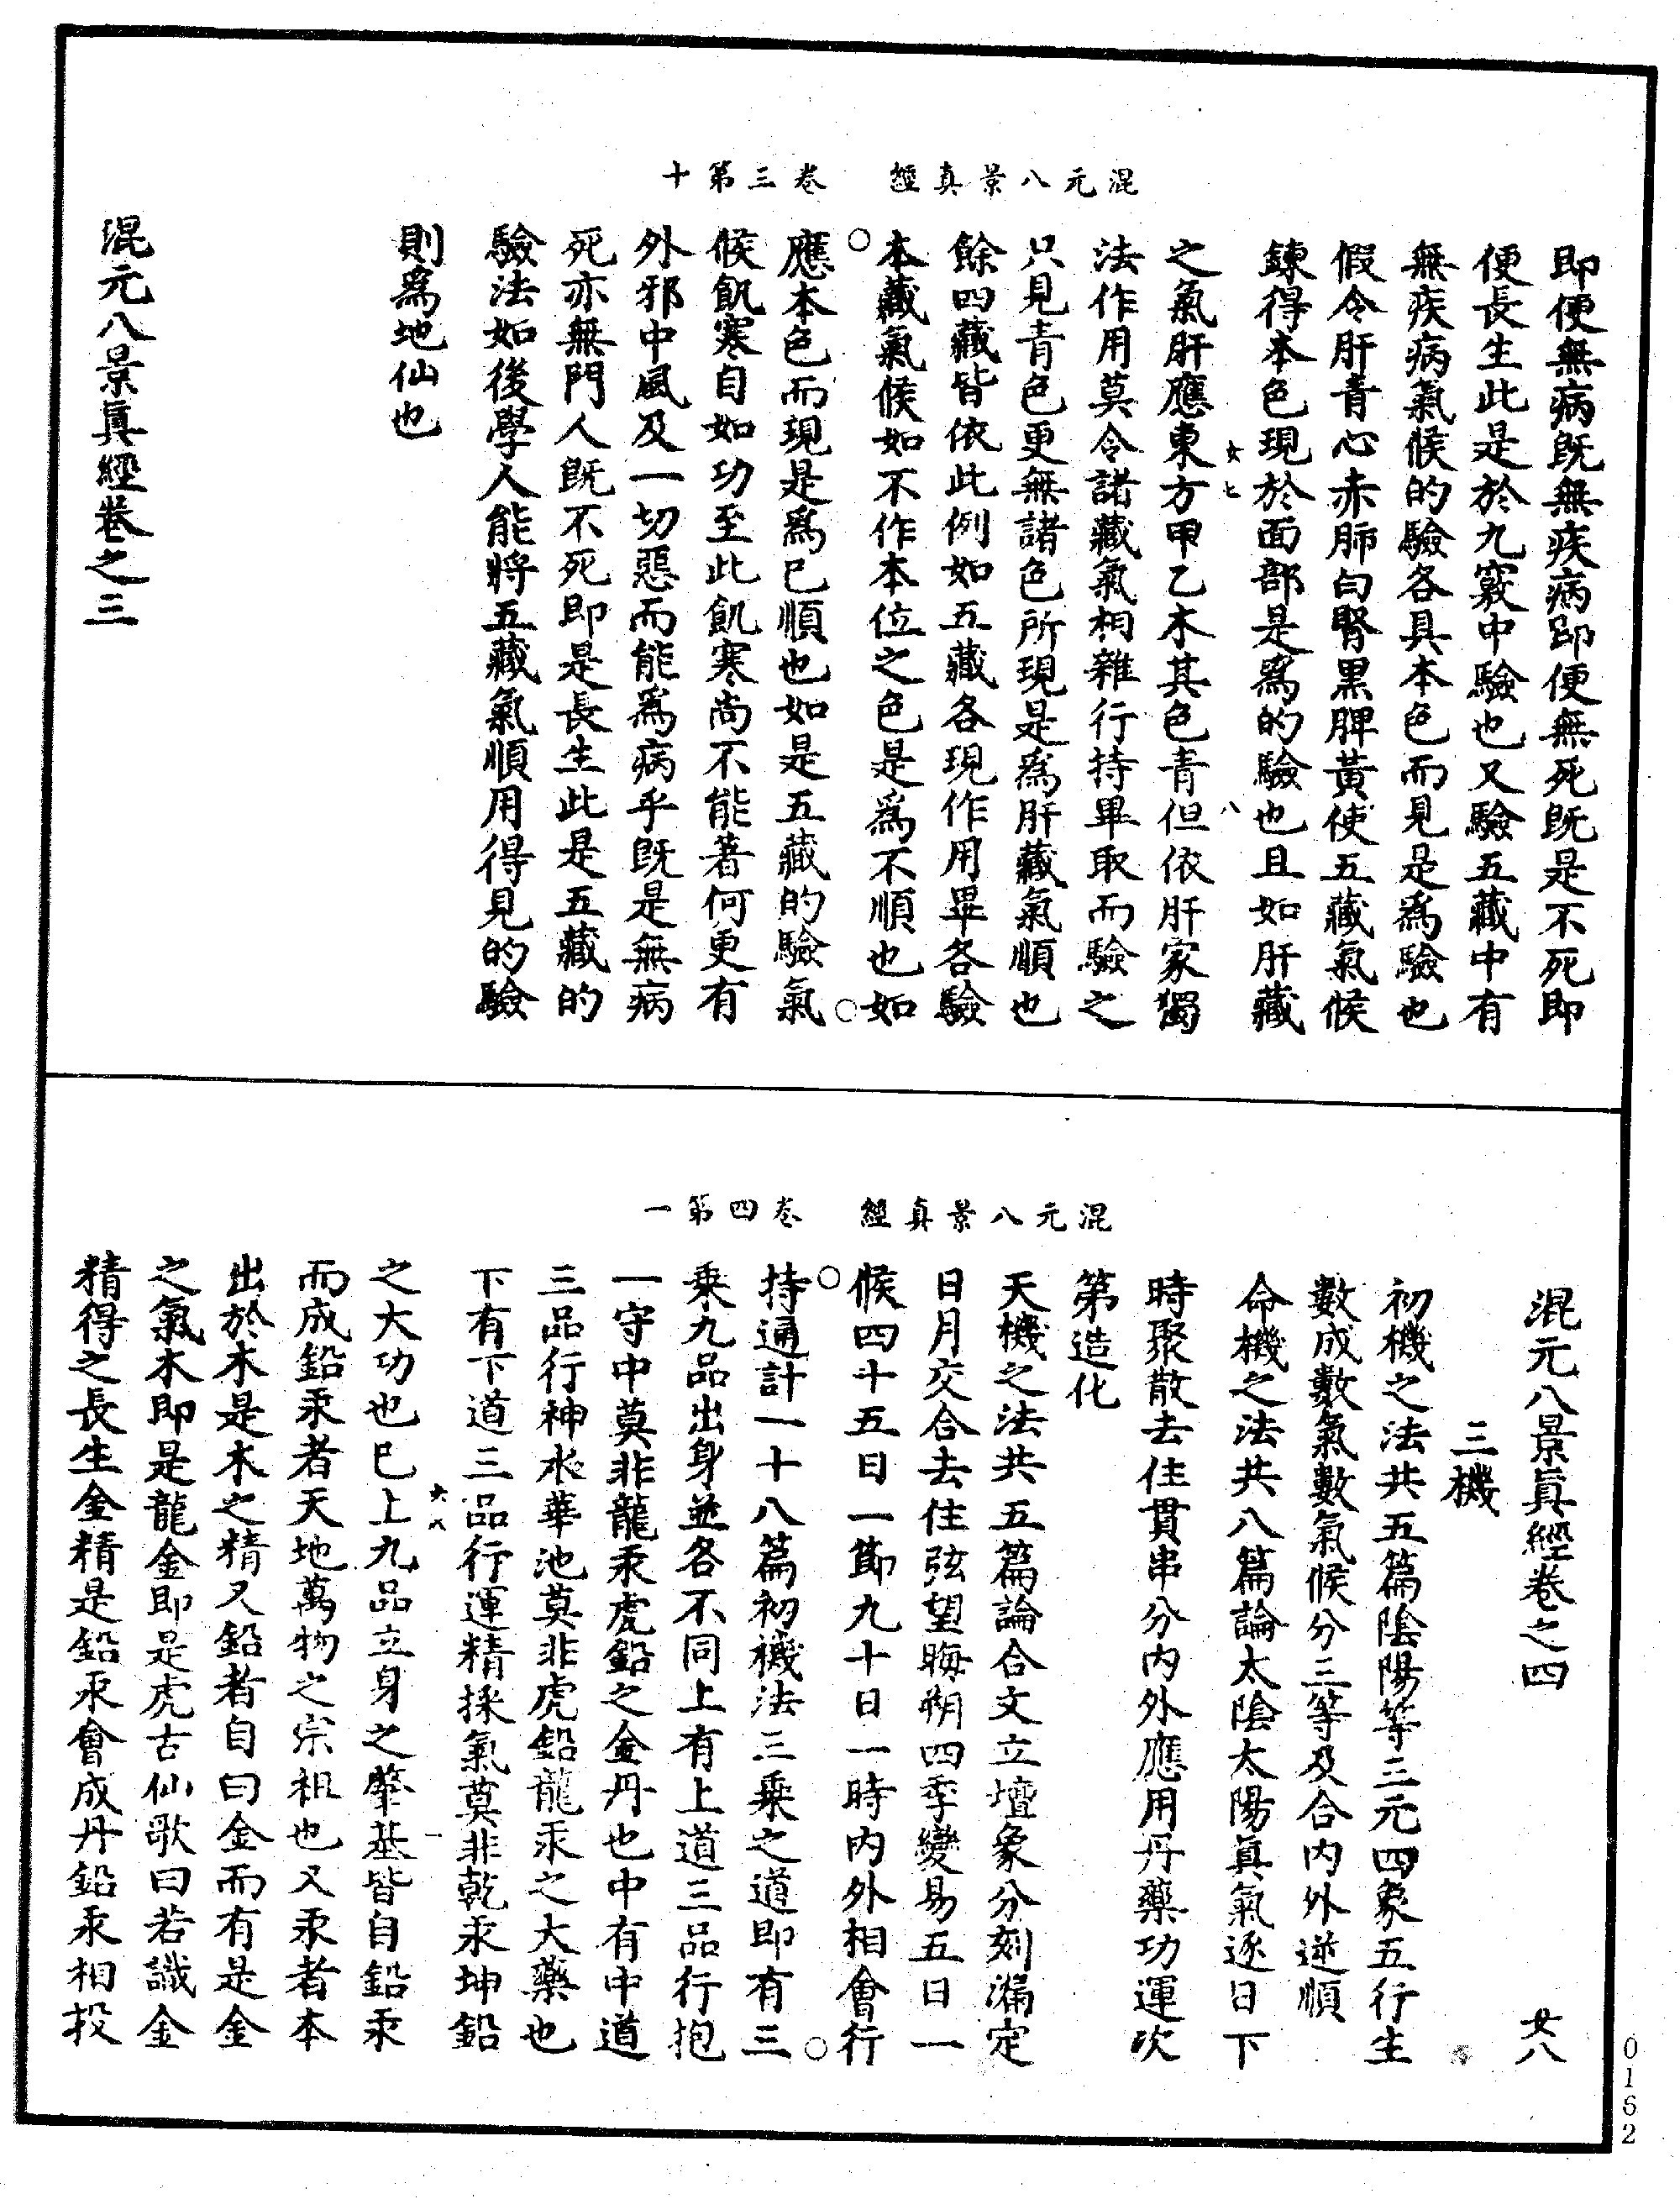 混元八景真經　卷三第十
即便無病既無疾病即便無死既是不死即
便長生此是於九竅中驗也又驗五藏中有
無疾病氣候的驗各具本色而見是為驗也
假令肝青心赤肺白腎黑脾黃使五藏氣候
鍊得本色現於面部是為的驗也且如肝藏
女七　八
之氣肝應東方甲乙木其色青但依肝家獨
法作用莫令諸藏氣相雜行持畢取而驗之
只見青色更無諸色所現是為肝藏氣順也
餘四藏皆依此例如五藏各現作用畢各驗
本藏氣候如不作本位之色是為不順也如
應本色而現是為已順也如是五藏的驗氣
候飢寒自如功至此飢寒尚不能著何更有
外邪中風及一切惡而能為病乎既是無病
死亦無門人既不死即是長生此是五藏的
驗法如後學人能將五藏氣順用得見的驗
則為地仙也
混元八景真經卷之三
混元八景真經　卷四第一
混元八景真經卷之四　女八
三機
初機之法共五篇陰陽等三元四象五行生
數成數氣數氣候分三等及合內外逆順
命機之法共八篇論太陰太陽真氣逐日下
時聚散去住貫串分內外應用丹藥功運次
第造化
天機之法共五篇論合文立壇象分刻漏定
日月交合去住弦望晦朔四季變易五日一
候四十五日一節九十日一時內外相會行
持通計一十八篇初機法三乘之道即有三
乘九品出身並各不同上有上道三品行抱
一守中莫非龍汞虎鉛之金丹也中有中道
三品行神水華池莫非虎鉛龍汞之大藥也
下有下道三品行運精採氣莫非乾汞坤鉛
女八　一
之大功也已上九品立身之肇基皆自鉛汞
而成鉛汞者天地萬物之宗祖也又汞者本
出於木是木之精又鉛者自曰金而有是金
之氣木即是龍金即是虎古仙歌曰若識金
精得之長生金精是鉛汞會成丹鉛汞相投
0162